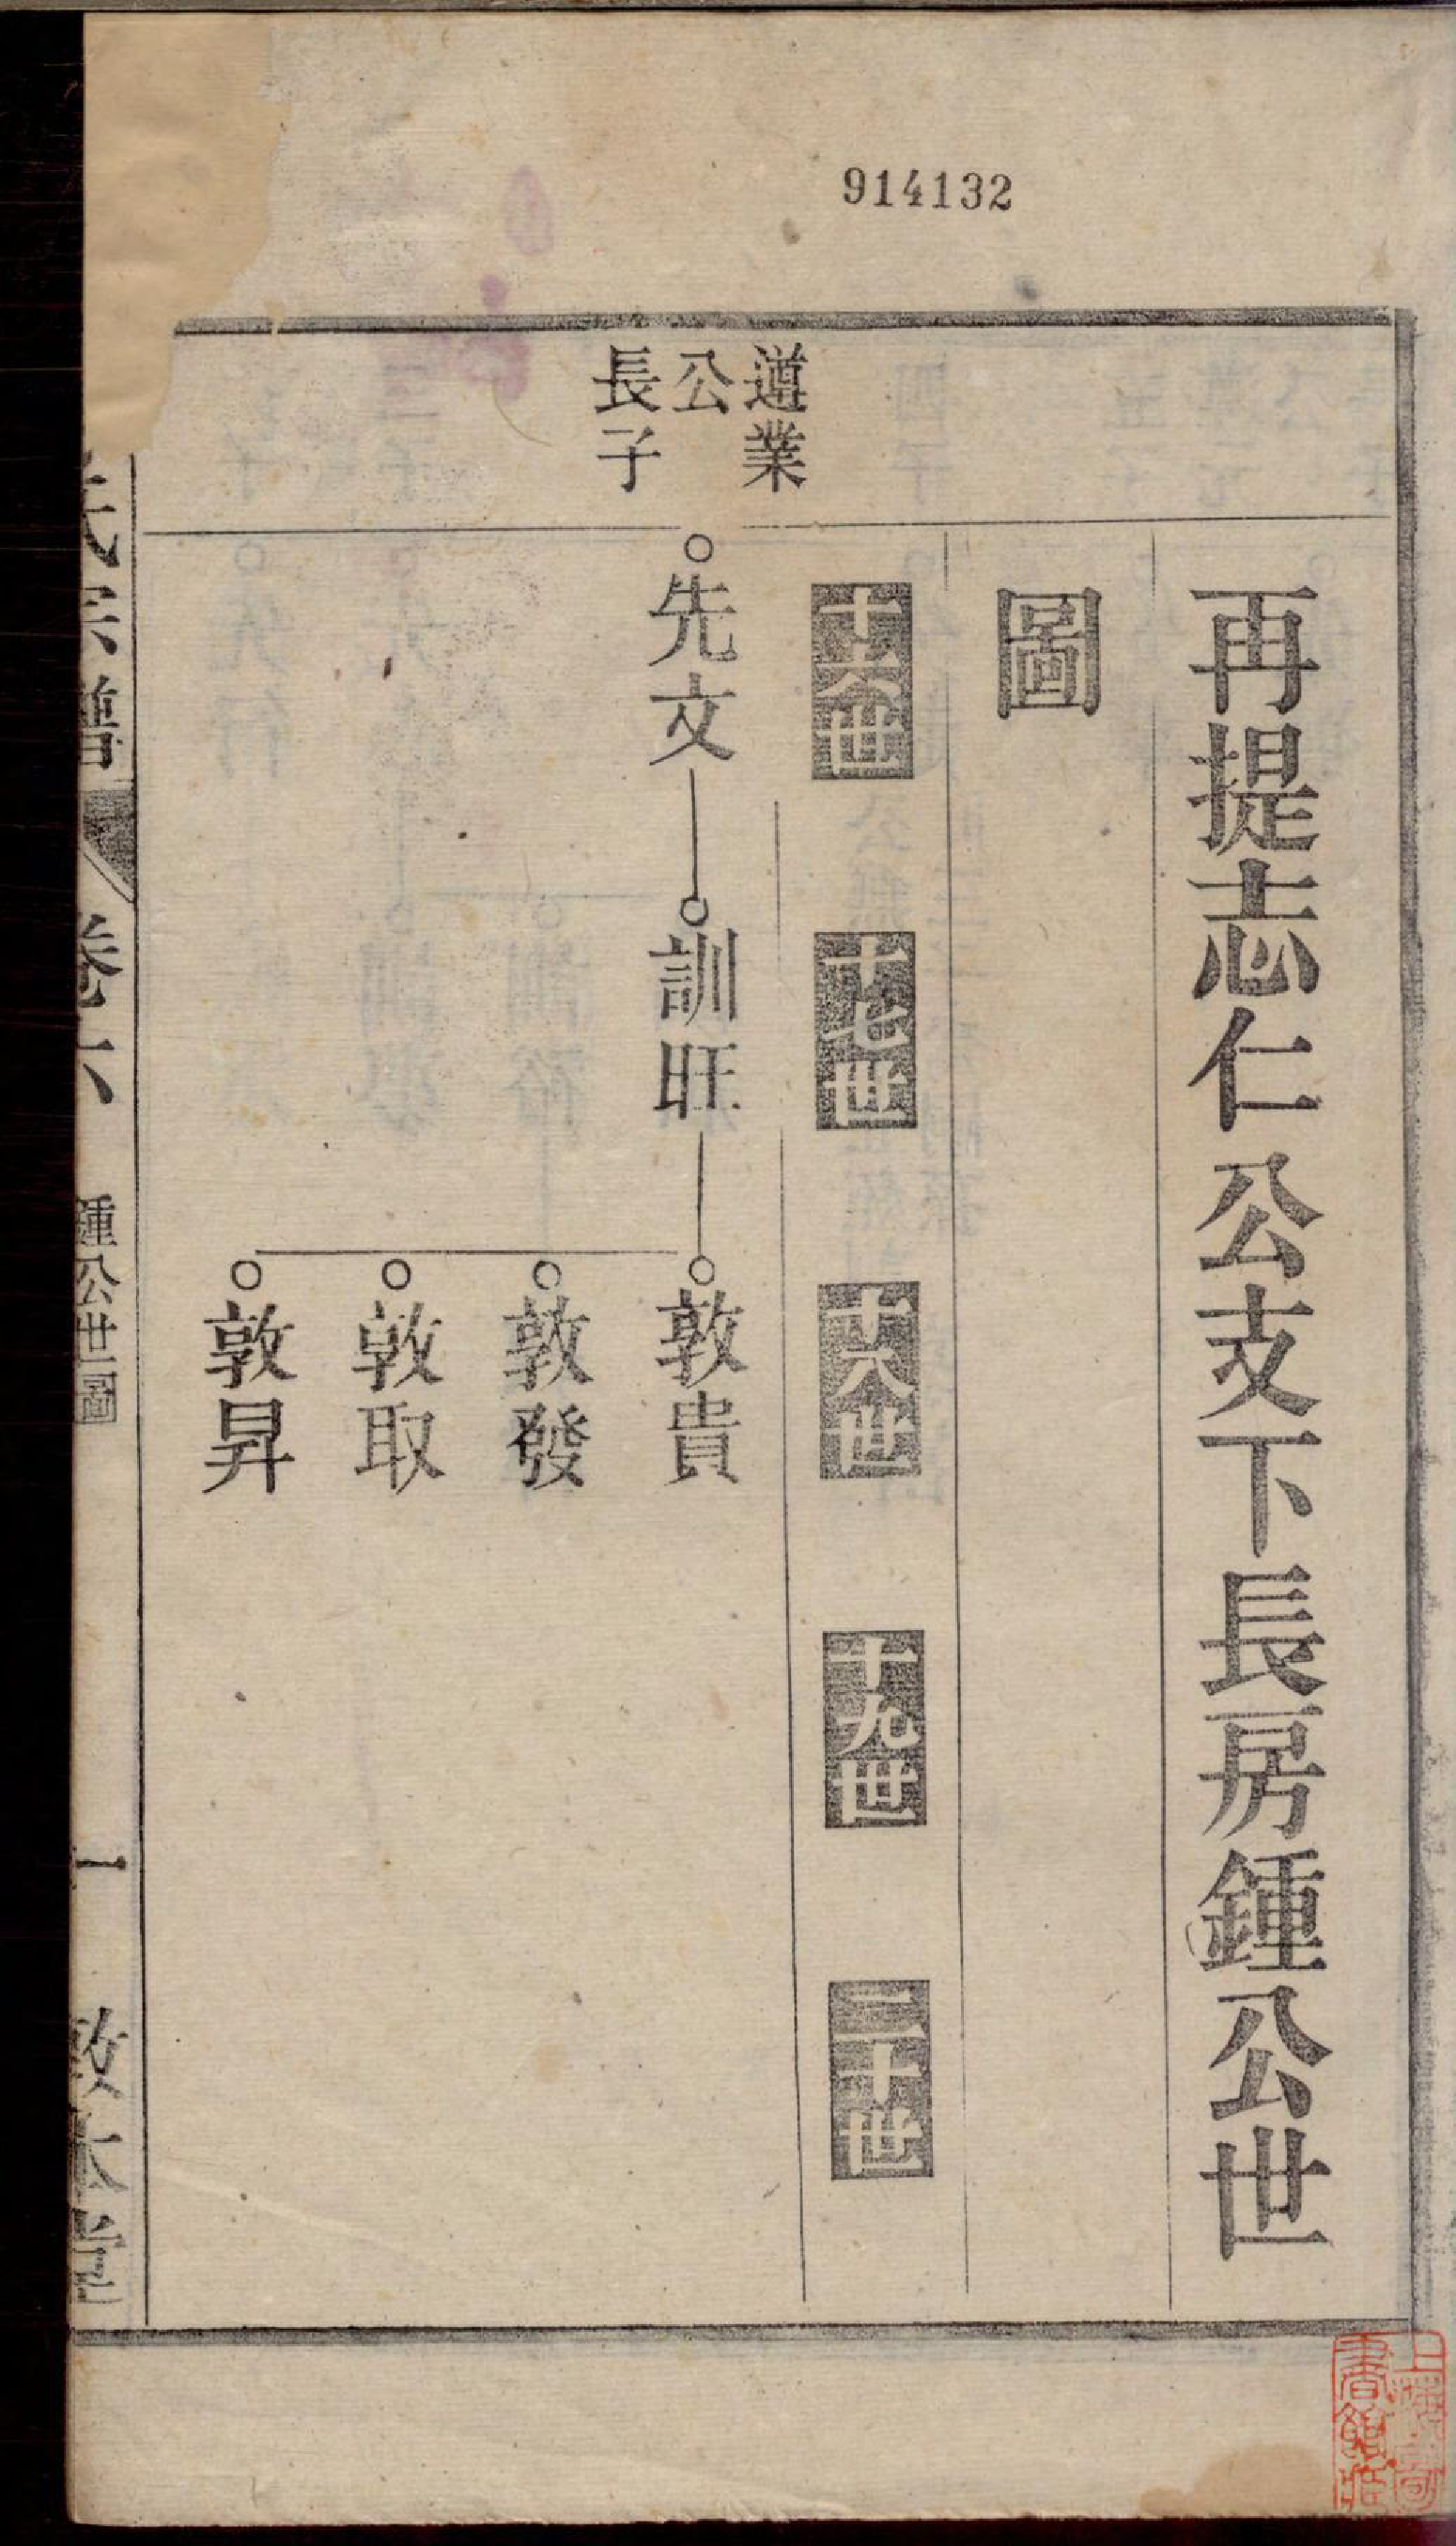 914132
再提志仁公支下長房鍾公世
圖
十六世
十七世
十八世
十九世
二十世
遵業
公
長子
先文
訓旺
敦貴
敦發
敦取
敦昇
氏宗譜
卷六
鍾公世圖
一
敦本堂